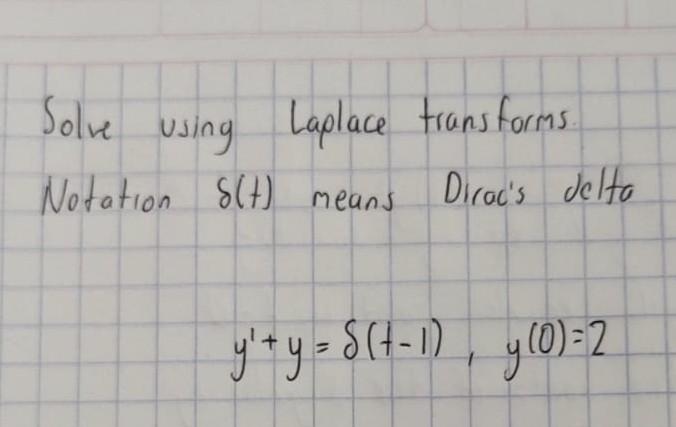 Solve using Laplace transforms.
Notation δ(t) means Dirac's delta
y' + y = δ(t-1) , y(0)=2